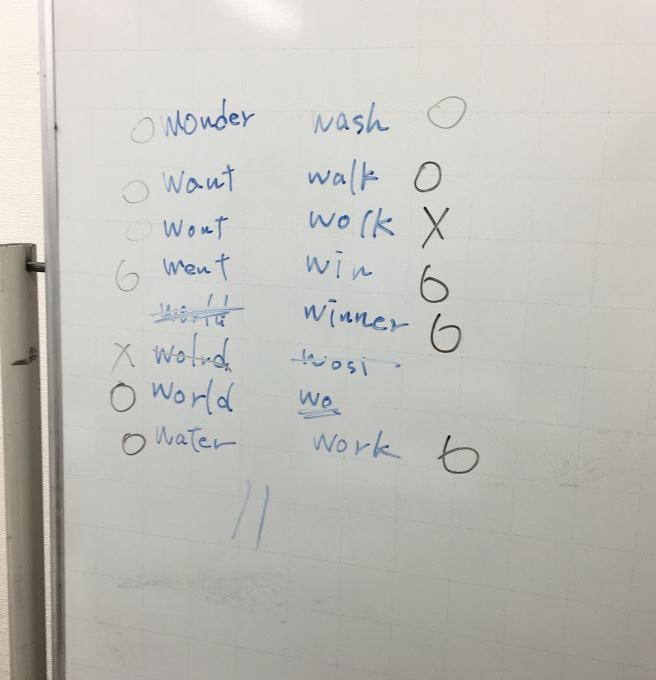 Wonder wash
Want walk
Wont wolk
Went win
winner
wolrd wosi
World wo
Water work
11